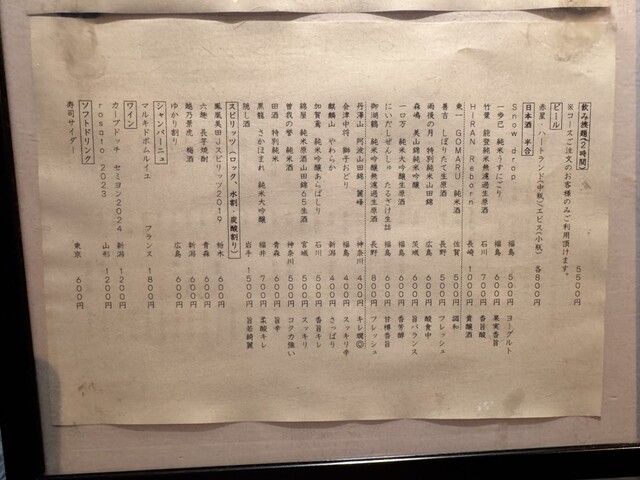 飲み放題(2時間) 5500円
※コースご注文のお客様のみご利用頂けます。
ビール
赤星・ハートランド(中瓶)/エビス(小瓶) 各800円
日本酒 半合
Snow drop 福島 500円 ヨーグルト
一歩己 純米うすにごり 福島 600円 果実香旨
竹葉 能登純米無濾過生原酒 石川 700円 香旨酸
HIRAN Reborn 長崎 1000円 貴醸酒
東一 GOMARU 純米酒 佐賀 500円 調和
甚吉 しぼりたて生原酒 長野 500円 フレッシュ
雨後の月 特別純米山田錦 広島 600円 酸食中
森嶋 美山錦純米吟醸 茨城 600円 旨バランス
一口万 純米大吟醸生原酒 福島 600円 香芳醇
にいだしぜんしゅ たるざけ生詰 福島 600円 甘樽香旨
御湖鶴 純米吟醸無濾過生原酒 長野 800円 フレッシュ
丹澤山 阿波山田錦 麗峰 神奈川 400円 キレ燗◎
会津中将 獅子おどり 福島 400円 スッキリ辛
麒麟山 やわらか 新潟 400円 さっぱり
加賀鳶 純米吟醸あらばしり 石川 500円 香旨キレ
錦屋 純米原酒山田錦65生酒 宮城 500円 スッキリ
曽我の誉 純米酒 神奈川 500円 コク力強い
田酒 特別純米 青森 600円 旨辛
黒龍 さかほまれ 純米大吟醸 福井 700円 柔酸キレ
隠し酒 岩手 1500円 旨若綺麗
スピリッツ(ロック、水割・炭酸割り)
鳳凰美田Jスピリッツ2019 栃木 600円
六趣 長芋焼酎 青森 600円
越乃景虎 梅酒 新潟 600円
ゆかり割り 広島 600円
シャンパーニュ
マルキドポムルイエ フランス 1800円
ワイン
カーブドッチ セミヨン2024 新潟 1200円
rosato 2023 山形 1200円
ソフトドリンク
寿司サイダー 東京 600円